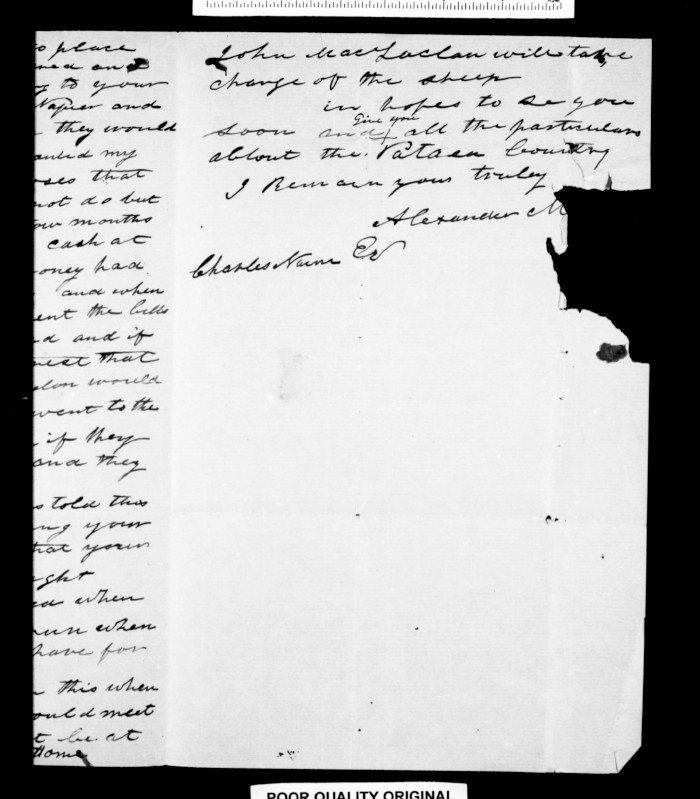 to place
ned and
y to your
Napier and
they would
my
ses that
not do but
few months
cash at
oney had
and when
ent the bills
d and if
nest that
lon would
went to the
if they
and they
s told this
ng your
hat your
ght
ed when
run when
have for
this when
ould meet
t be at
Home
John MacLaclan will take
charge of the sheep
in hopes to se you
soon and Give you all the particulars
about the Pataea Country
I Remain your truley
Alexander M
Charles Nairn Esq
POOR QUALITY ORIGINAL